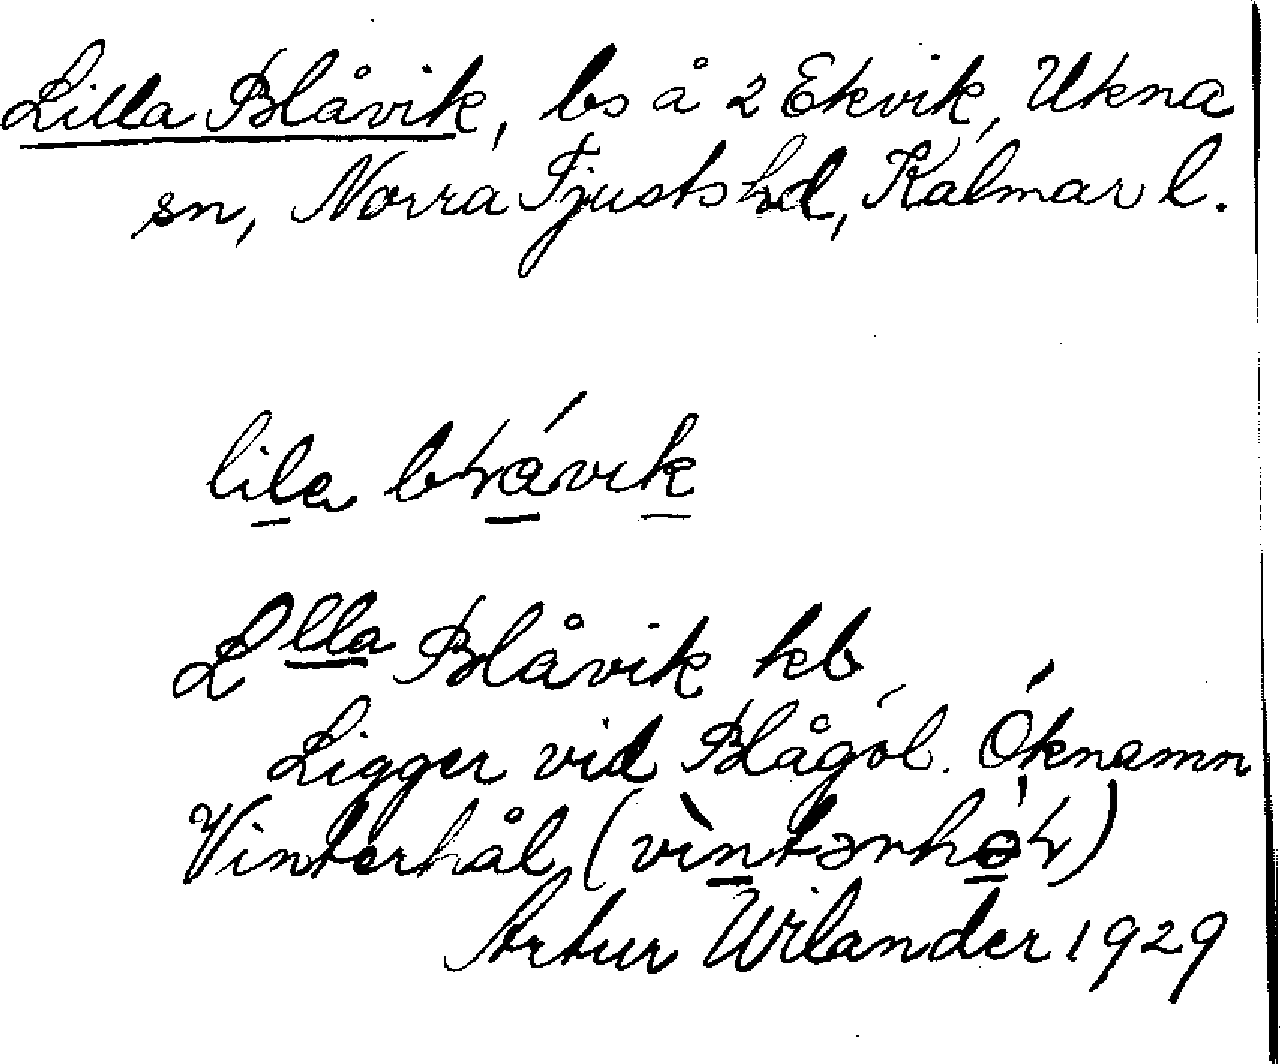 Lilla Blåvik, ls å 2 Ekvik, Ukna
sn, Norra Tjusts hd, Kalmar l.
lila
Llla Blåvik kb
Ligger vid Blågöl. Öknamn
Vinterhål
Artur Wilander 1929